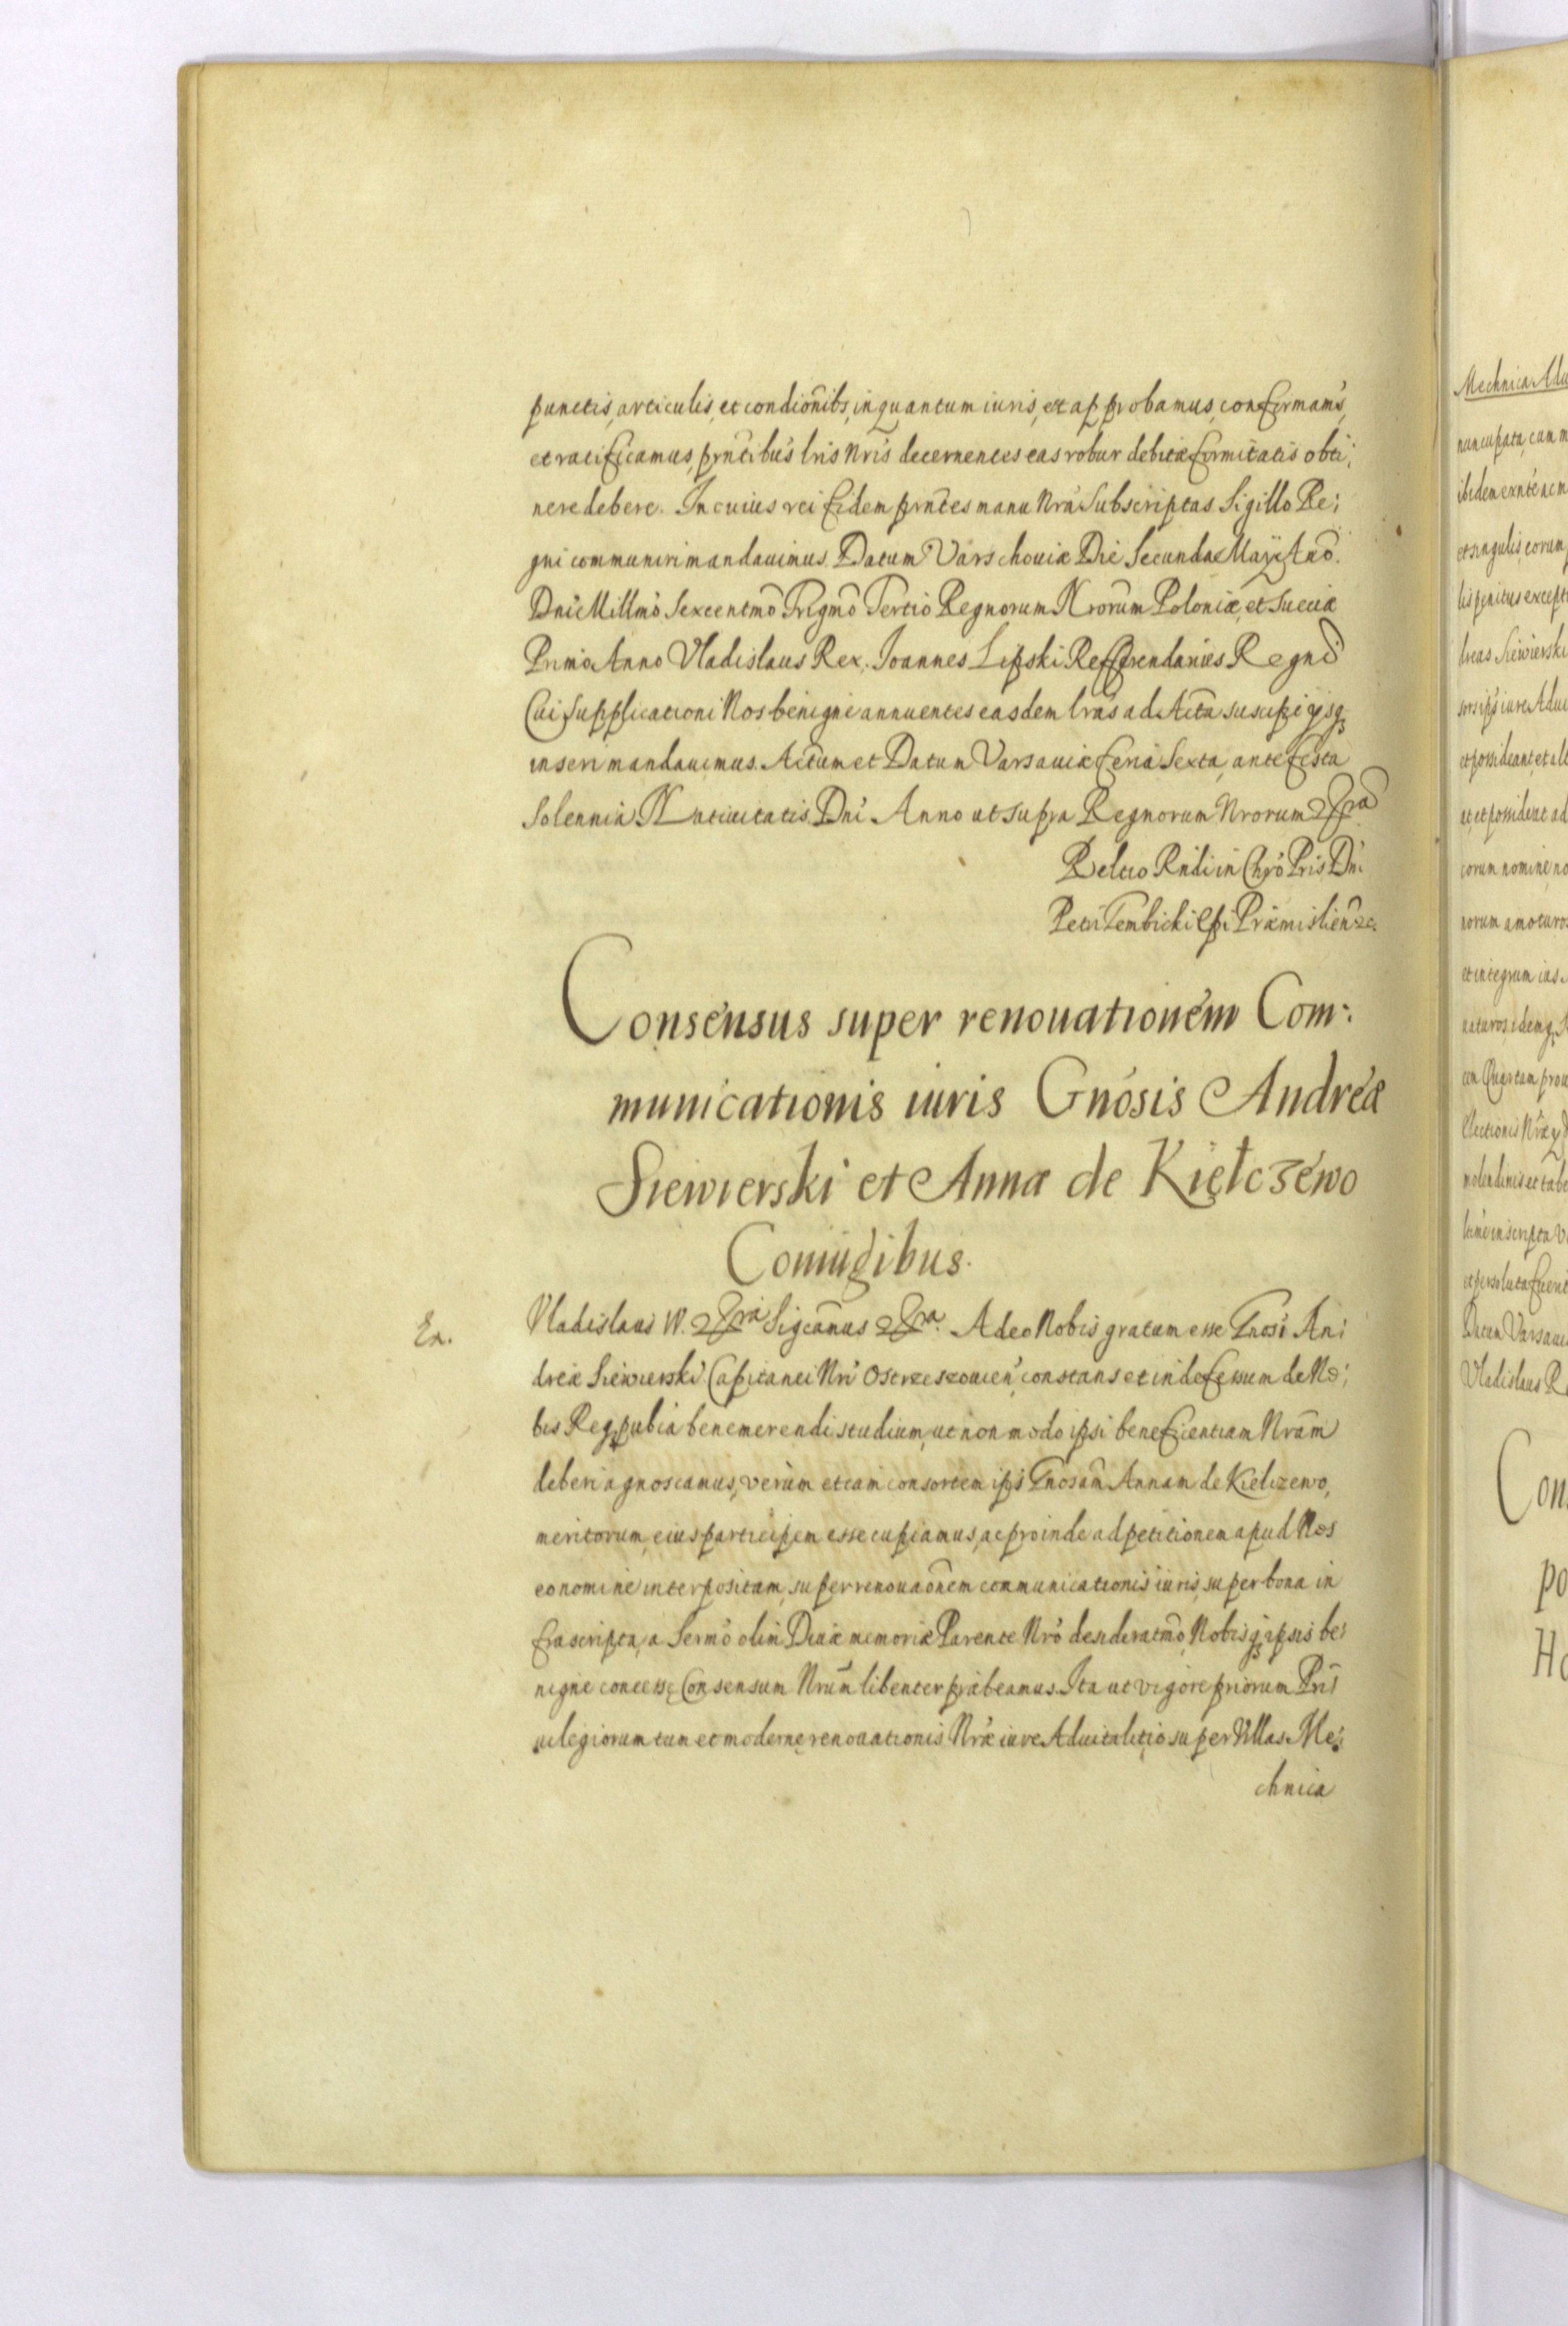 punctis, articulis, et condionibs, inquantum iuris, et approbamus, confirmams,
et ratificamus, prntibus lris Nris decernentes eas robur debitæ firmitatis obti;
nere debere. In cuius rei fidem prntes manu Nra Subscriptas Sigillo Re;
gni communiri mandauimus. Datum Varschouiæ Die Secunda Maÿ Ano.
Dni Millmo Sexcentmo Trigmo Tertio Regnorum Nrorum Poloniæ, et Sueciæ
Primo Anno Vladislaus Rex. Ioannes Lipski Refferendarius Regni
Cui supplicationi Nos benigne annuentes easdem lras ad Acta suscipi ijsq
inseri mandauimus. Actum et Datum Varsauiæ feria Sexta, ante festa
Solennia Natiuitatis Dni Anno ut supra Regnorum Nrorum
Reltio Rndi in Chro Pris Dni
Petri Gembicki Epi Præmislien
Consensus super renouationem Com:
municationis iuris Gnosis Andreæ
Siewierski et Anna de Kiełczewo
Coniugibus.
Ex.
Vladislaus IV. Sigcamus Adeo Nobis gratum esse Gnosi An;
dreæ Siewierski Capitanei Nri Ostrzeszouien constans et indefessum de No;
bis Reqpubla benemerendi studium, ut non modo ipsi beneficientiam Nram
deberi agnoscamus, verum etiam consortem ips Gnosam Annam de Kielczewo,
meritorum eius participem esse cupiamus, ac proinde ad petitionem apud Nos
eo nomine interpositam, super renouaonem communicationis iuris, super bona in
frascripta, a Sermo olim Diuæ memoriæ Parente Nro desideratmo, Nobisq ipsis be;
nigne concessę Consensum Nrum libenter præbeamus. Ita ut vigore priorum Pri;
uilegiorum tum et modernę renouationis Nræ iure Aduitalitio super Villas Me;
chnica
Mechnica Adu
nuncupata, cum
ibidem
et singulis eorum
lis penitus except
dreas Siewierski
et possideant, et all
at, et possideat ad
eorum nomine no
norum amoturos
et integrum ius
Datum Varsaui
Vladislaus R
Con
po